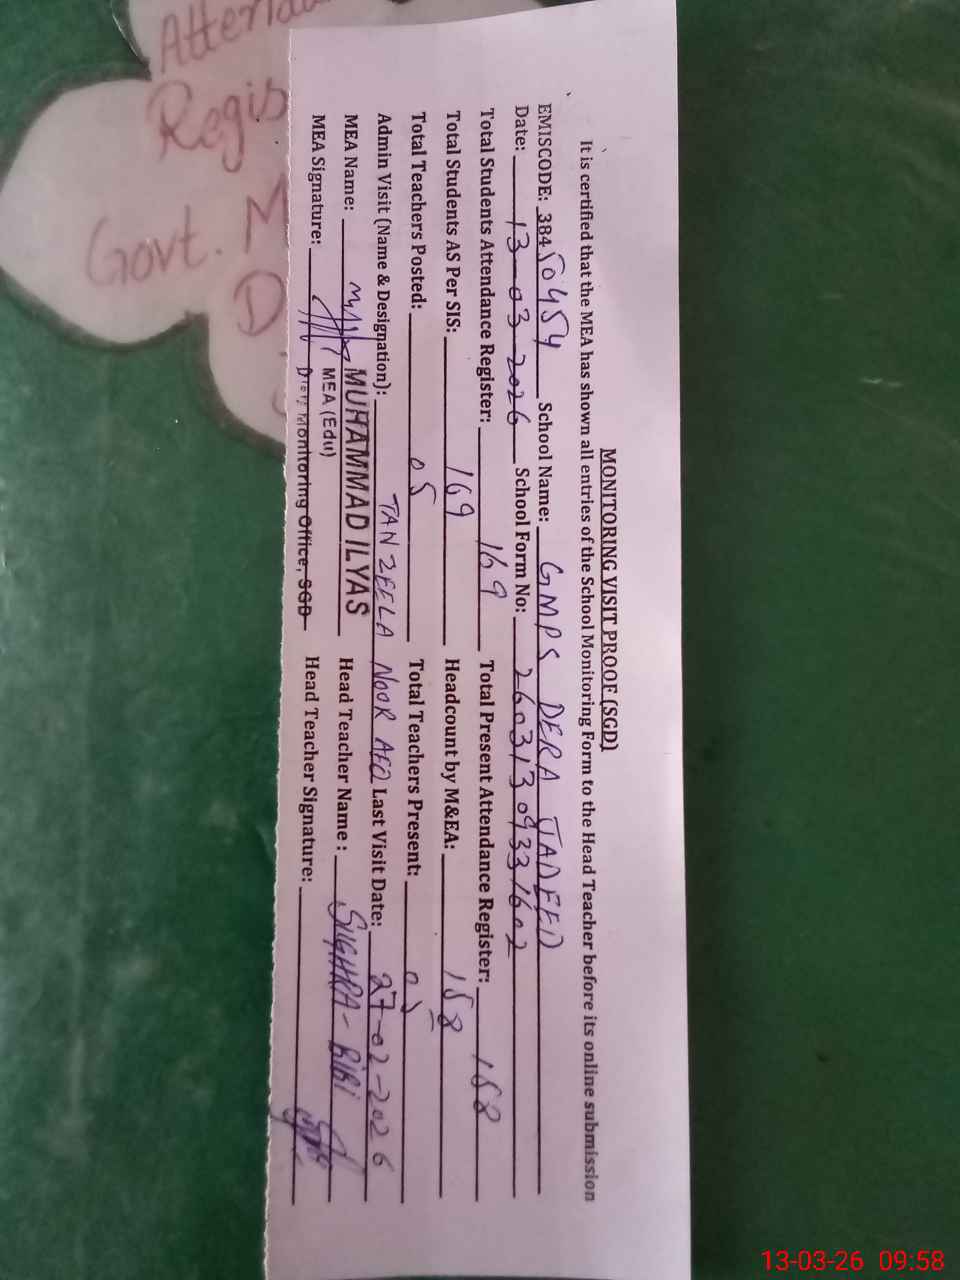 Attenda
Regis
Govt. M
D
MONITORING VISIT PROOF (SGD)
It is certified that the MEA has shown all entries of the School Monitoring Form to the Head Teacher before its online submission
EMISCODE: 38450454 School Name: GMPS DERA JADEED
Date: 13-03-2026 School Form No: 26031309331602
Total Students Attendance Register: 169 Total Present Attendance Register: 158
Total Students AS Per SIS: 169 Headcount by M&EA: 158
Total Teachers Posted: 05 Total Teachers Present: 05
Admin Visit (Name & Designation): TANZEELA NOOR AEO Last Visit Date: 27-02-2026
MEA Name: MUHAMMAD ILYAS Head Teacher Name : SUGHRA-BIBI
MEA (Edu)
MEA Signature: Distt: Monitoring Office, SGD Head Teacher Signature:
13-03-26 09:58